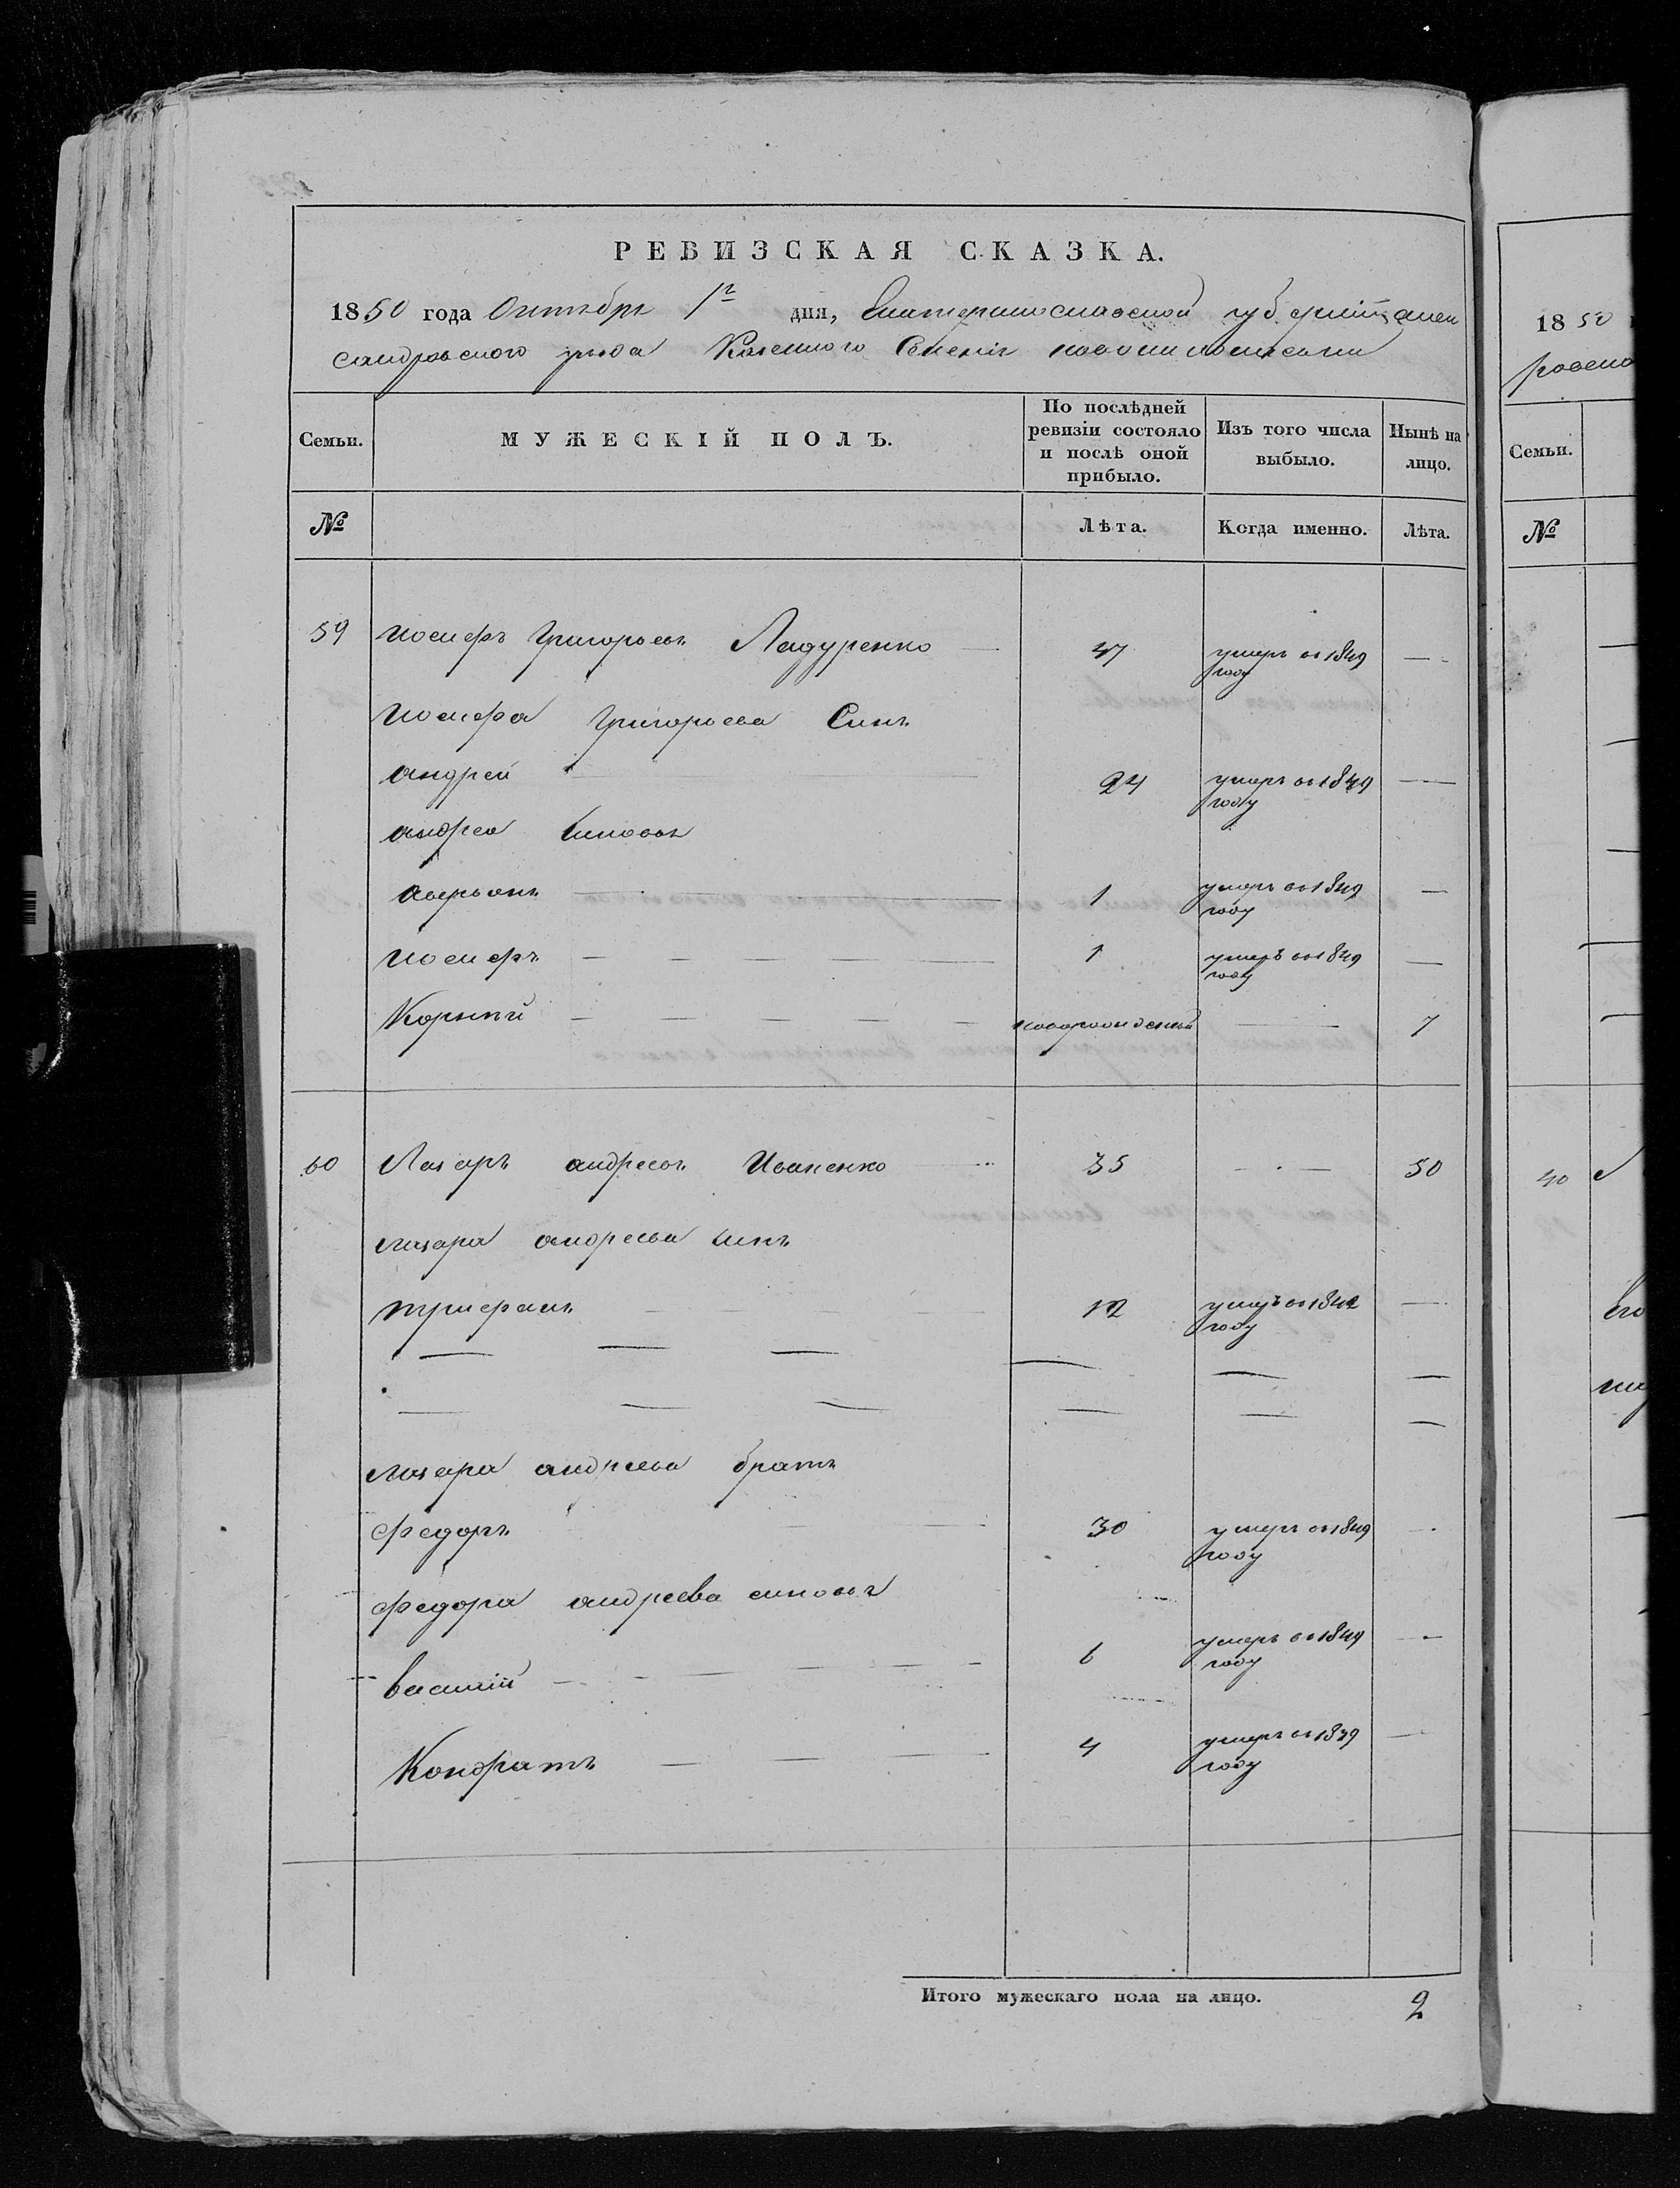 РЕВИЗСКАЯ СКАЗКА.
1850 года Октября 1го дня, Екатеринославской губернии Алек
сандровскаго уезда Казенного Селенія
Семьи.
МУЖЕСКІЙ ПОЛЪ.
По послѣдней ревизіи состояло и послѣ оной прибыло.
Изъ того числа выбыло.
Нынѣ на лицо.
№
Лѣта.
Когда именно.
Лѣта.
59 Иосифъ Григорьевъ Ладуренко 47 умеръ въ 1849 году —
Иосифа Григорьева Синъ
Андрей 24 умеръ въ 1849 году —
Андрея Синовья
Аверьянъ 1 умеръ въ 1849 году —
Иосифъ 1 умеръ въ 1849 году —
Корнѣй новорожденный — 7
60 Лазарь Андреевъ Иваненко 35 — 50
Лазара Андреева синъ
Трифанъ 12 умеръ въ 1842 году —
Лазара Андреева братъ
Федоръ 30 умеръ въ 1849 году —
Федора Андреева синовья
Василій 6 умеръ въ 1849 году —
Кондратъ 4 умеръ въ 1839 году —
Итого мужескаго пола на лицо. 2
1850
Семьи.
№
40